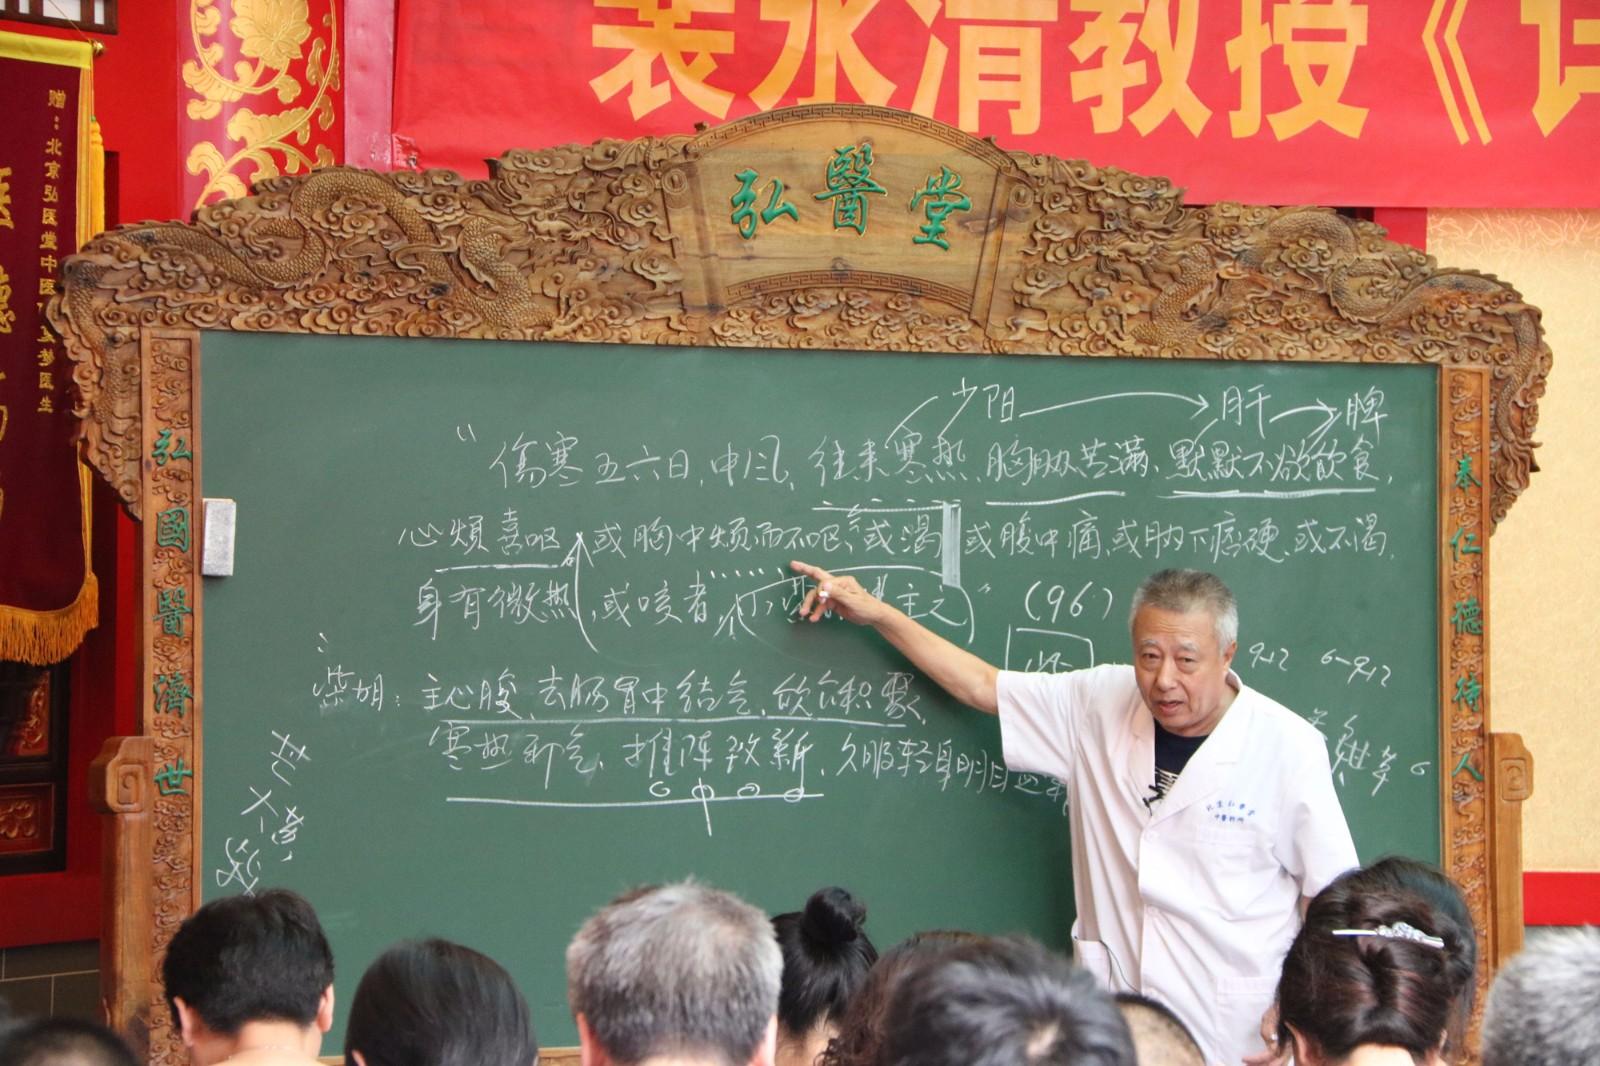 裴永清教授《
赠：北京弘医堂中医
医德
弘醫堂
弘國醫濟世
奉仁德待人
少阳 肝 脾
"傷寒五六日,中风、往来寒热、胸胁苦满、默默不欲飲食,
心煩喜呕,或胸中烦而不呕、或渴、或腹中痛,或胁下痞硬,或不渴,
身有微热,或咳者,小 主之" (96)
912 6-912
柴胡：主心腹,去肠胃中结气,飲食积聚,
寒热邪气、推陈致新,久服轻身明目益